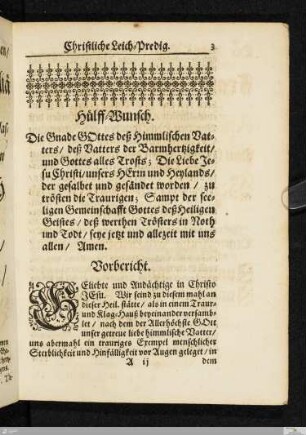 Christliche Leich/Predig. 3
Hülff/Wunsch.
Die Gnade GOttes deß Himmlischen Vat-
ters/ deß Vatters der Barmhertzigkeit/
und Gottes alles Trosts; Die Liebe Je-
su Christi/ unsers HErrn und Heylands/
der gesalbet und gesändet worden/ zu
trösten die Traurigen; Sampt der see-
ligen Gemeinschafft Gottes deß Heiligen
Geistes/ deß werthen Trösters in Noth
und Todt/ seye jetzt und allezeit mit uns
allen/ Amen.
Vorbericht.
GEliebte und Andächtige in Christo
JEsu. Wir seind zu diesem mahl an
dieser Heil. stätte/ als in einem Traur-
und Klag-Hauß beyeinander versamb-
let/ nach dem der Allerhöchste GOtt
unser getreue liebe himmlische Vatter/
uns abermahl ein trauriges Exempel menschlicher
Sterblichkeit und Hinfälligkeit vor Augen geleget/ in
A ij dem